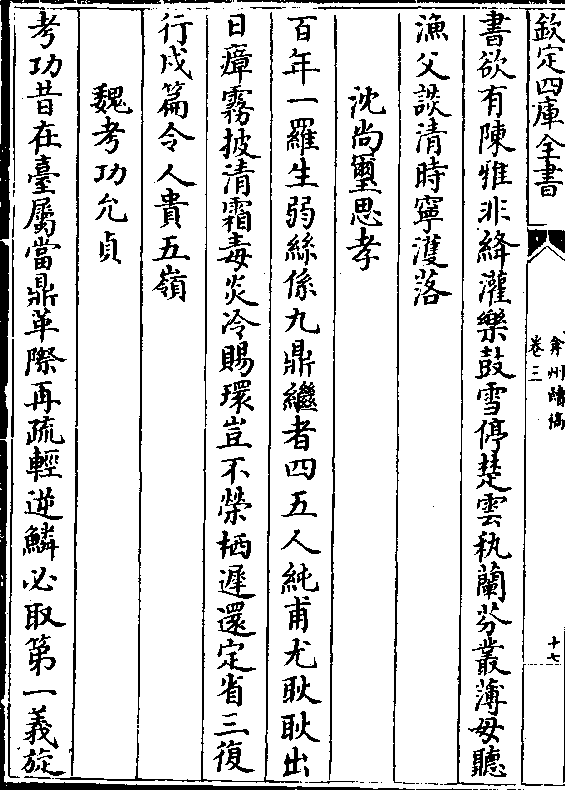 欽定四庫全書
弇州續稿
卷三
十七
書欲有陳雅非絳灌樂鼓雪停楚雲執蘭芬叢薄毋聽
漁父談清時寧濩落
沈尚璽思孝
百年一羅生弱絲係九鼎繼者四五人純甫尤耿耿出
日瘴霧披清霜毒炎冷賜環豈不榮栖遲還定省三復
行戍篇令人貴五嶺
魏考功允貞
考功昔在臺屬當鼎革際再疏輕逆鱗必取第一義旋